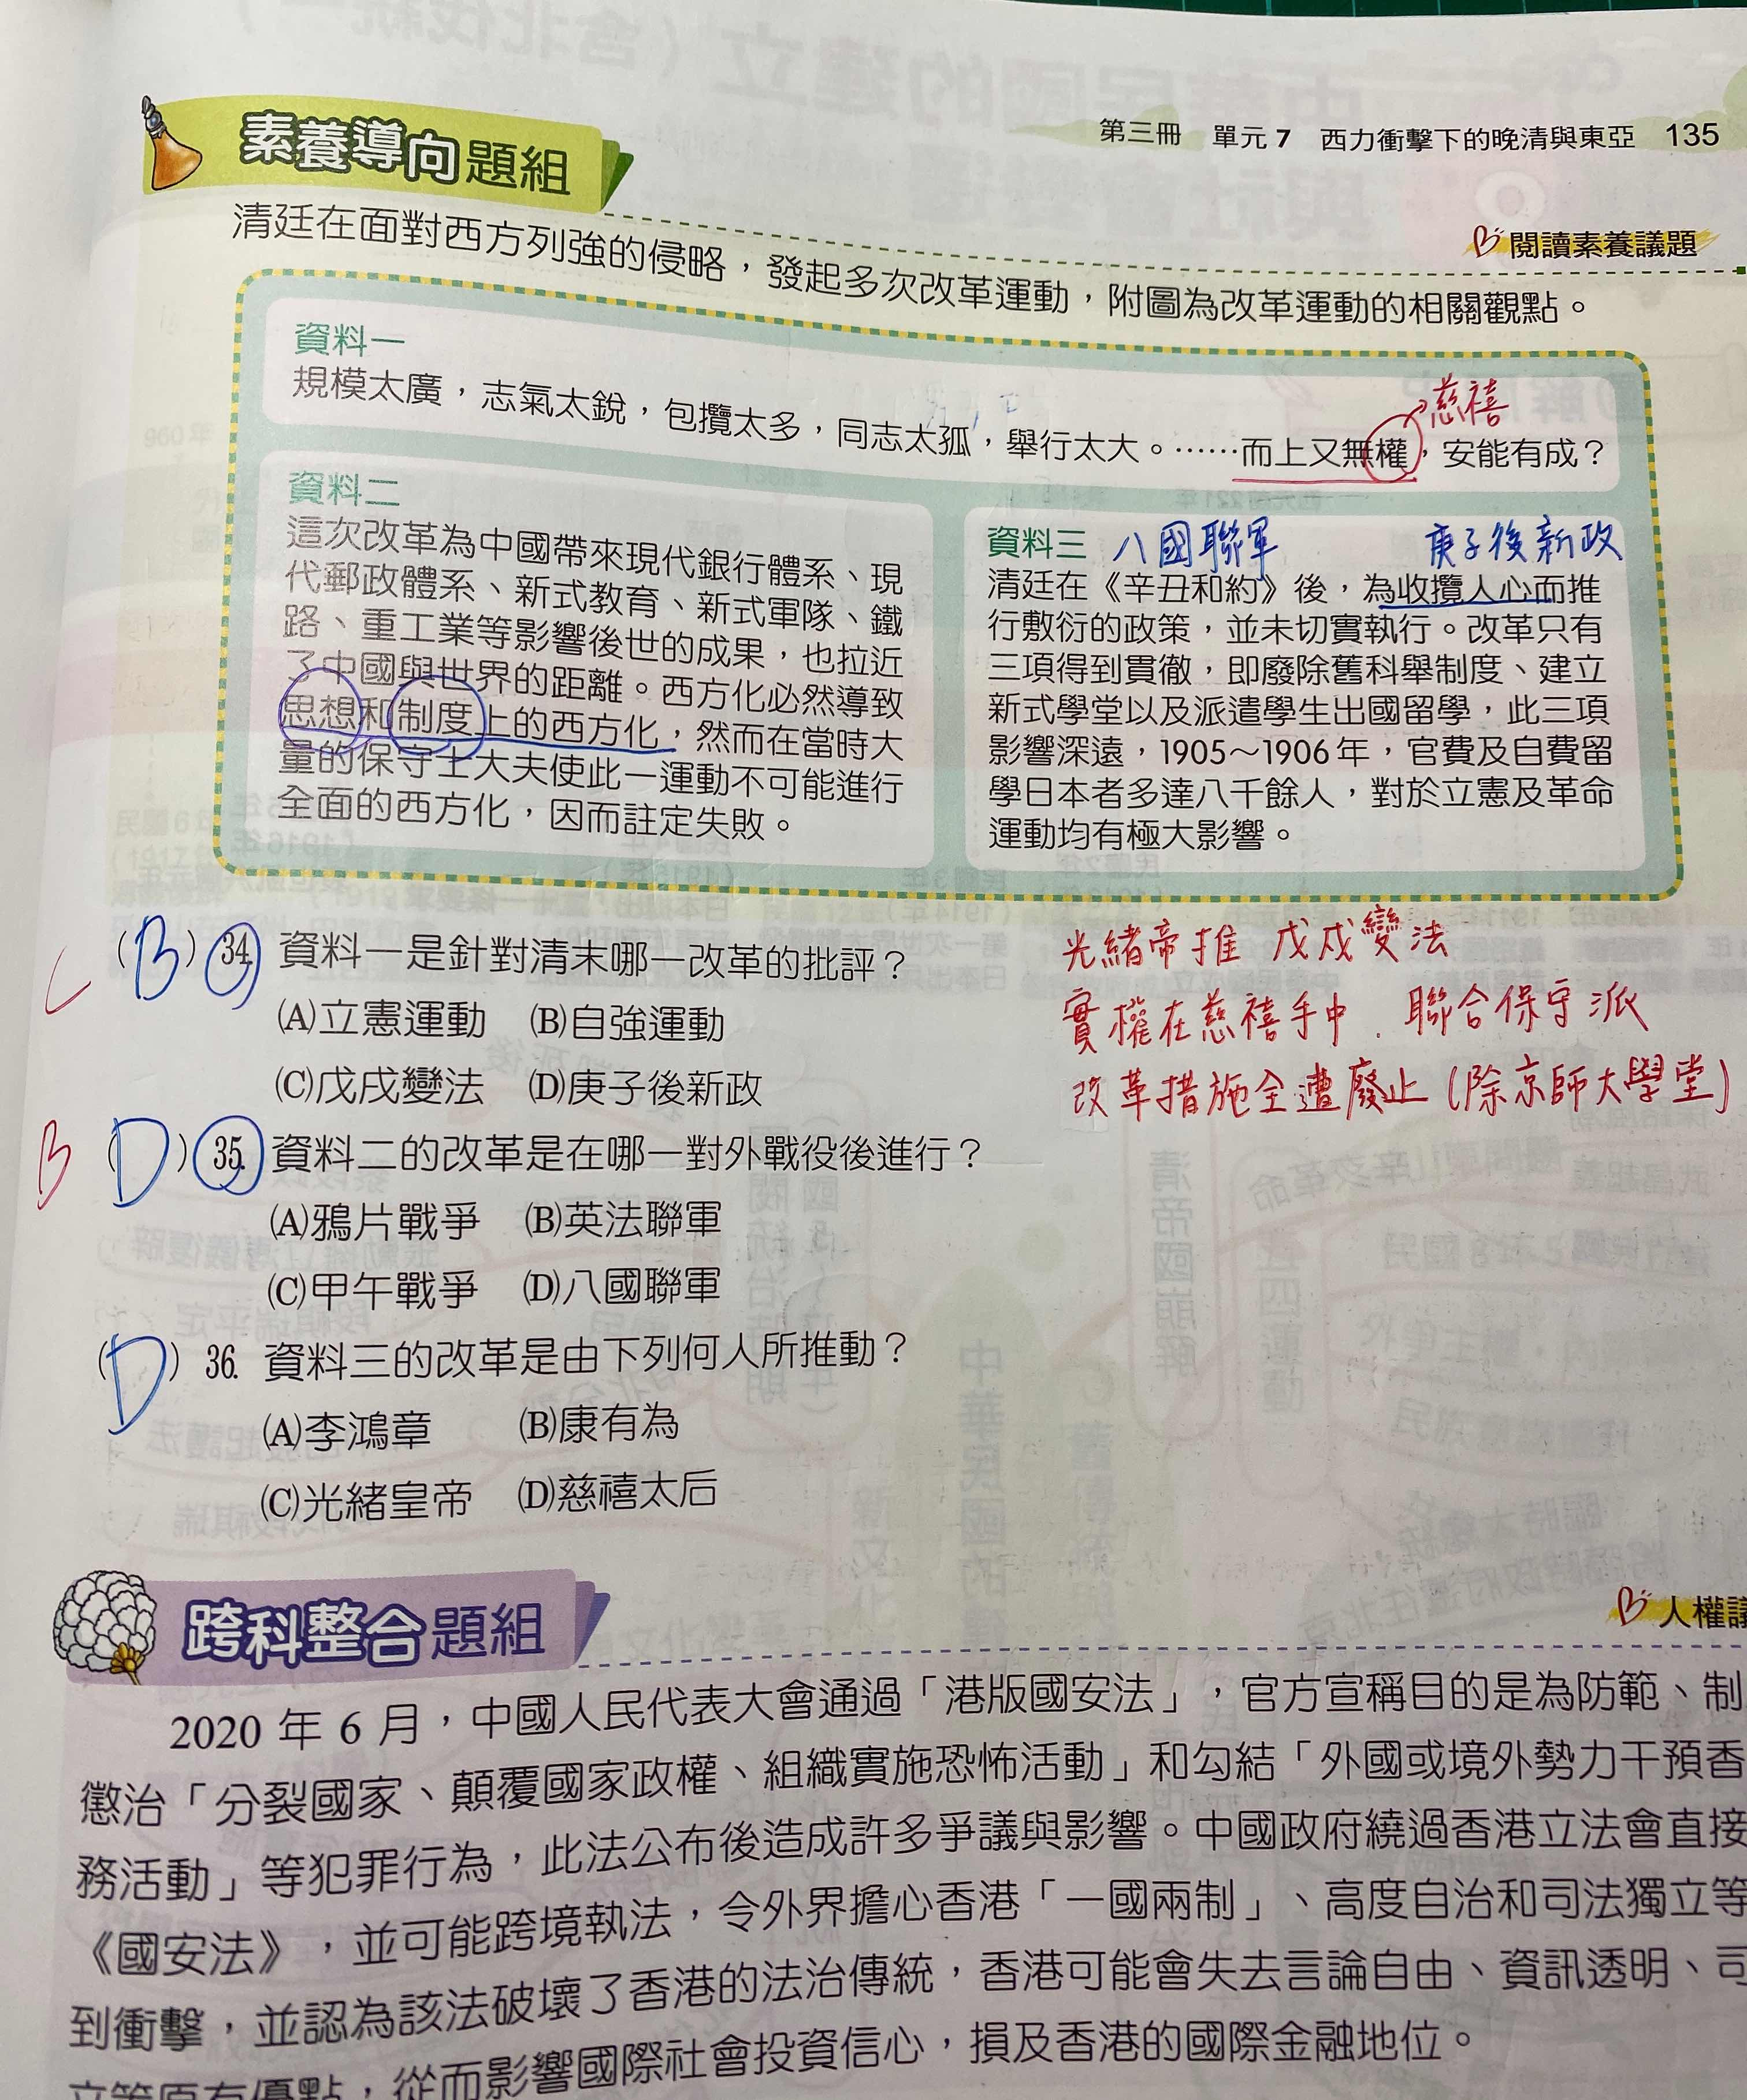 第三冊 單元7 西力衝擊下的晚清與東亞 135
素養導向題組
閱讀素養議題
清廷在面對西方列強的侵略，發起多次改革運動，附圖為改革運動的相關觀點。
資料一
慈禧
規模太廣，志氣太銳，包攬太多，同志太孤，舉行太大。……而上又無權，安能有成？
資料二
這次改革為中國帶來現代銀行體系、現
代郵政體系、新式教育、新式軍隊、鐵
路、重工業等影響後世的成果，也拉近
了中國與世界的距離。西方化必然導致
思想和制度上的西方化，然而在當時大
量的保守士大夫使此一運動不可能進行
全面的西方化，因而註定失敗。
資料三 八國聯軍 庚子後新政
清廷在《辛丑和約》後，為收攬人心而推
行敷衍的政策，並未切實執行。改革只有
三項得到貫徹，即廢除舊科舉制度、建立
新式學堂以及派遣學生出國留學，此三項
影響深遠，1905～1906年，官費及自費留
學日本者多達八千餘人，對於立憲及革命
運動均有極大影響。
C (B) 34. 資料一是針對清末哪一改革的批評？
(A)立憲運動 (B)自強運動
(C)戊戌變法 (D)庚子後新政
光緒帝推 戊戌變法
實權在慈禧手中．聯合保守派
改革措施全遭廢止(除京師大學堂)
B (D) 35. 資料二的改革是在哪一對外戰役後進行？
(A)鴉片戰爭 (B)英法聯軍
(C)甲午戰爭 (D)八國聯軍
(D) 36. 資料三的改革是由下列何人所推動？
(A)李鴻章 (B)康有為
(C)光緒皇帝 (D)慈禧太后
跨科整合題組
人權議
2020 年 6 月，中國人民代表大會通過「港版國安法」，官方宣稱目的是為防範、制
懲治「分裂國家、顛覆國家政權、組織實施恐怖活動」和勾結「外國或境外勢力干預香
務活動」等犯罪行為，此法公布後造成許多爭議與影響。中國政府繞過香港立法會直接
《國安法》，並可能跨境執法，令外界擔心香港「一國兩制」、高度自治和司法獨立等
到衝擊，並認為該法破壞了香港的法治傳統，香港可能會失去言論自由、資訊透明、司
立等原有優點，從而影響國際社會投資信心，損及香港的國際金融地位。